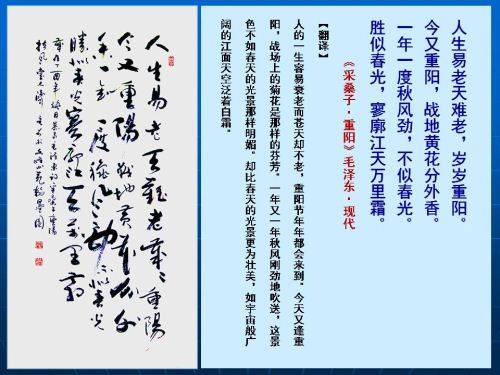 人生易老天难老，岁岁重阳。
今又重阳，战地黄花分外香。
一年一度秋风劲，不似春光。
胜似春光，寥廓江天万里霜。
《采桑子·重阳》毛泽东·现代
【翻译】
人的一生容易衰老而苍天却不老，重阳节年年都会来到。今天又逢重
阳，战场上的菊花是那样的芬芳。一年又一年秋风刚劲地吹送，这景
色不如春天的光景那样明媚。却比春天的光景更为壮美，如宇宙般广
阔的江面天空泛着白霜。
人生易老天難老歲歲重陽
今又重陽戰地黄花分外
香一年一度秋風勁不似春光
勝似春光寥廓江天萬里霜